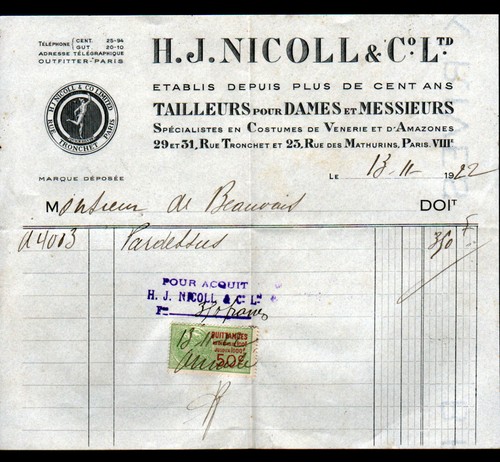 TÉLÉPHONE { CENT. 25-94
GUT. 20-10
ADRESSE TÉLÉGRAPHIQUE
OUTFITTER-PARIS
H.J. NICOLL & Co. LTD
ETABLIS DEPUIS PLUS DE CENT ANS
TAILLEURS POUR DAMES ET MESSIEURS
SPÉCIALISTES EN COSTUMES DE VENERIE ET D'AMAZONES
29 ET 31, RUE TRONCHET ET 23, RUE DES MATHURINS, PARIS. VIIIe
H.J. NICOLL & Co LIMITED
RUE TRONCHET PARIS
MARQUE DÉPOSÉE
LE 13-11-1922
Monsieur de Beauvais DOIT
a 4013 Pardessus 350 F
POUR ACQUIT
H. J. NICOLL & Co LTD
350 francs
QUITTANCES
50c
13-11